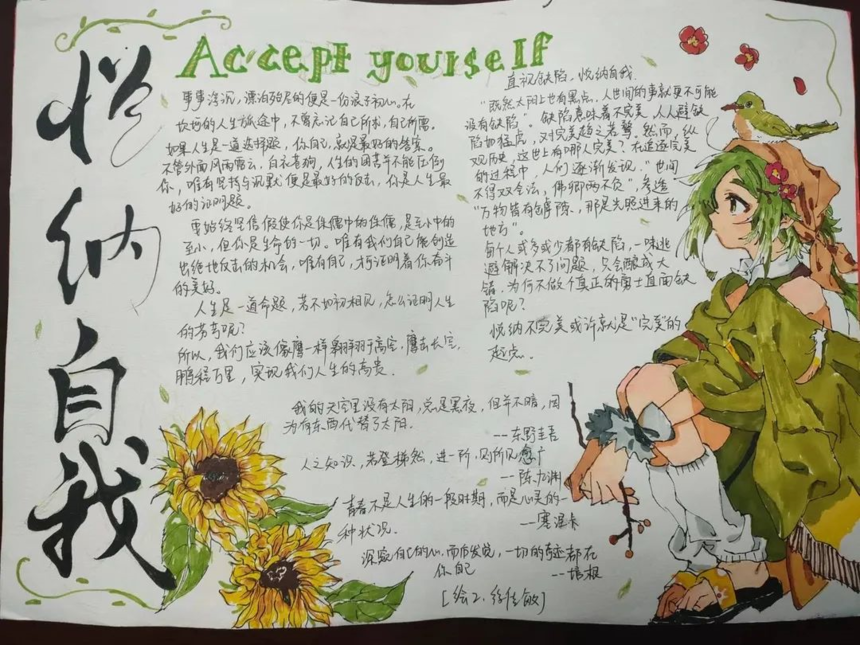 悦纳自我
Accept yourself
事事浮沉，漂泊殆尽的便是一份浪子初心。在
坎坷的人生旅途中，不要忘记自己所求，自己所需。
如果人生是一道选择题，你自己，就是最好的答案。
不管外面风雨雷云，白衣苍狗，人生的困苦并不能压倒
你，唯有坚持与沉默便是最好的反击，你是人生最
好的证明题。
要始终坚信假使你是侏儒中的侏儒，是至小中的
至小，但你是生命的一切。唯有我们自己能创造
出绝地反击的机会，唯有自己，才证明着你奋斗
的美好。
人生是一道命题，若不如初相见，怎么证明人生
的芳华呢？
所以，我们应该像鹰一样翱翔于高空，鹰击长空，
鹏程万里，实现我们人生的高贵。
直视缺陷，悦纳自我
“既然太阳上也有黑点，人世间的事就更不可能
没有缺陷”。缺陷意味着不完美，人人避缺
陷如猛虎，对完美趋之若鹜。然而，纵
观历史，这世上有哪人完美？在追逐完美
的过程中，人们逐渐发现，“世间
不得双全法，佛卿两不负”，参透
“万物皆有缝隙，那是光照进来的
地方”。
每个人或多或少都有缺陷，一味逃
避解决不了问题，只会酿成大
错，为何不做个真正的勇士直面缺
陷呢？
悦纳不完美或许就是“完美”的
起点。
我的天空里没有太阳，总是黑夜，但并不暗，因
为有东西代替了太阳。
--东野圭吾
人之知识，若登梯然，进一阶，则所见愈广
--陈九渊
青春不是人生的一段时期，而是心灵的一
种状况。
--塞涅卡
深窥自己的心，而后发觉，一切的奇迹都在
你自己
--培根